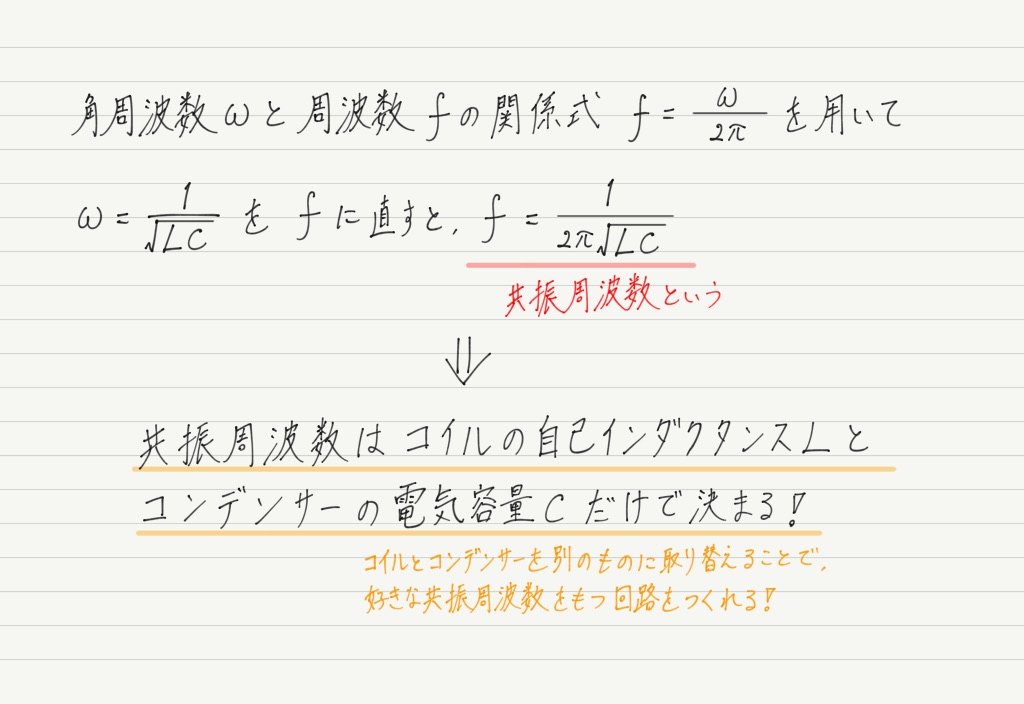 角周波数ωと周波数fの関係式 f = ω/2π を用いて
ω = 1/√LC を f に直すと, f = 1/2π√LC
共振周波数という
⇓
共振周波数はコイルの自己インダクタンスLと
コンデンサーの電気容量Cだけで決まる!
コイルとコンデンサーを別のものに取り替えることで,
好きな共振周波数をもつ回路をつくれる!